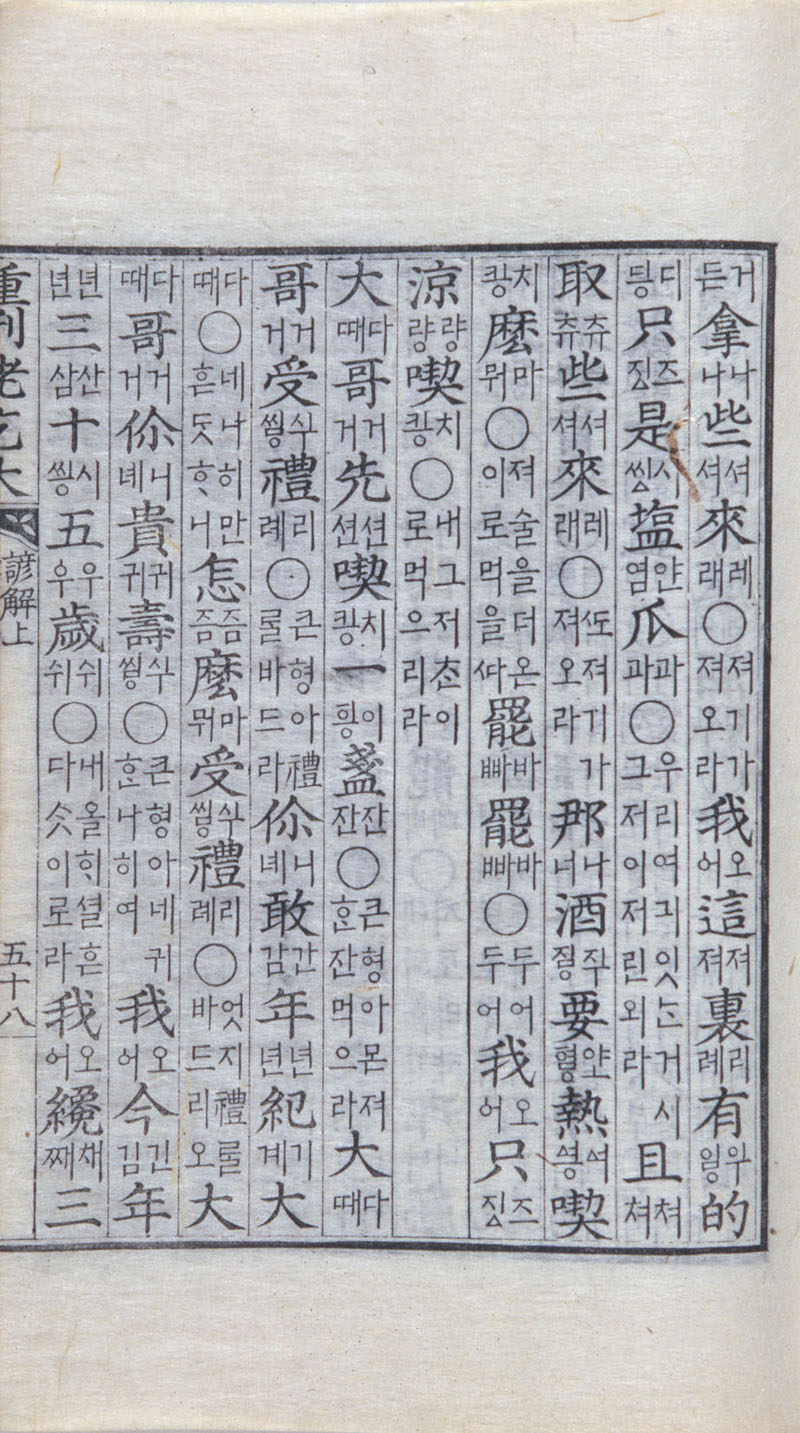 거듣拿나나些셔셔來레래○져기가져오라我오어這져져裏리례有우잉的
디딍只즈징是시씽塩얀염瓜과과○우리여긔잇ᄂᆞᆫ거시그저이저린외라且쳐쳐
取츄츄些셔셔來레래○ᄯᅩ져기가져오라那나너酒要熱喫
치킹麽마뭐○져술을더온이로먹을ᄯᅡ罷바빠罷바빠○두어두어我오어只즈징
涼량량喫치킹○내그저ᄎᆞᆫ이로먹으리라
大다때哥거거先션션喫치킹一이힝盞잔잔○큰형아몬져ᄒᆞᆫ잔먹으라大다때
哥거거受禮리례○큰형아禮ᄅᆞᆯ바드라你니녜敢간감年년년紀기계大
다때○네나히만흔ᄃᆞᆺᄒᆞ니怎즘즘麽마뭐受禮리례○엇지禮ᄅᆞᆯ바드리오大
다때哥거거你니녜貴귀귀壽○큰형아네귀ᄒᆞᆫ나히여我오어今긴김年
년년三산삼十시씽五우우歲쉬쉬○내올ᄒᆡ셜흔다ᄉᆞᆺ이로라我오어纔채째三
重刊老乞大 諺解上 五十八